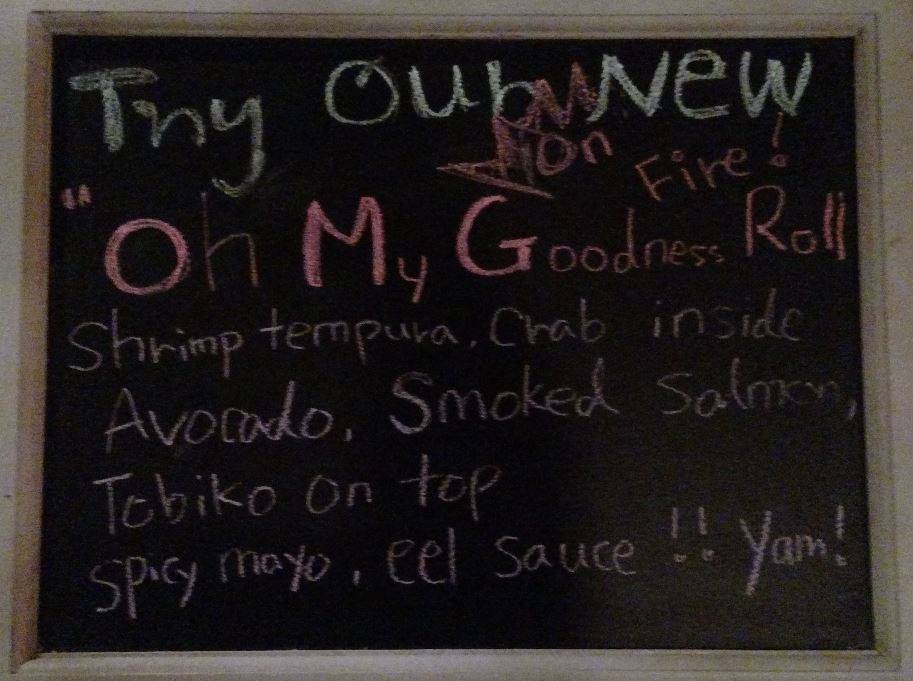 Try Our New
on Fire!
"Oh My Goodness Roll
Shrimp tempura, Crab inside
Avocado, Smoked Salmon,
Tobiko on top
Spicy mayo, eel sauce !! Yam!